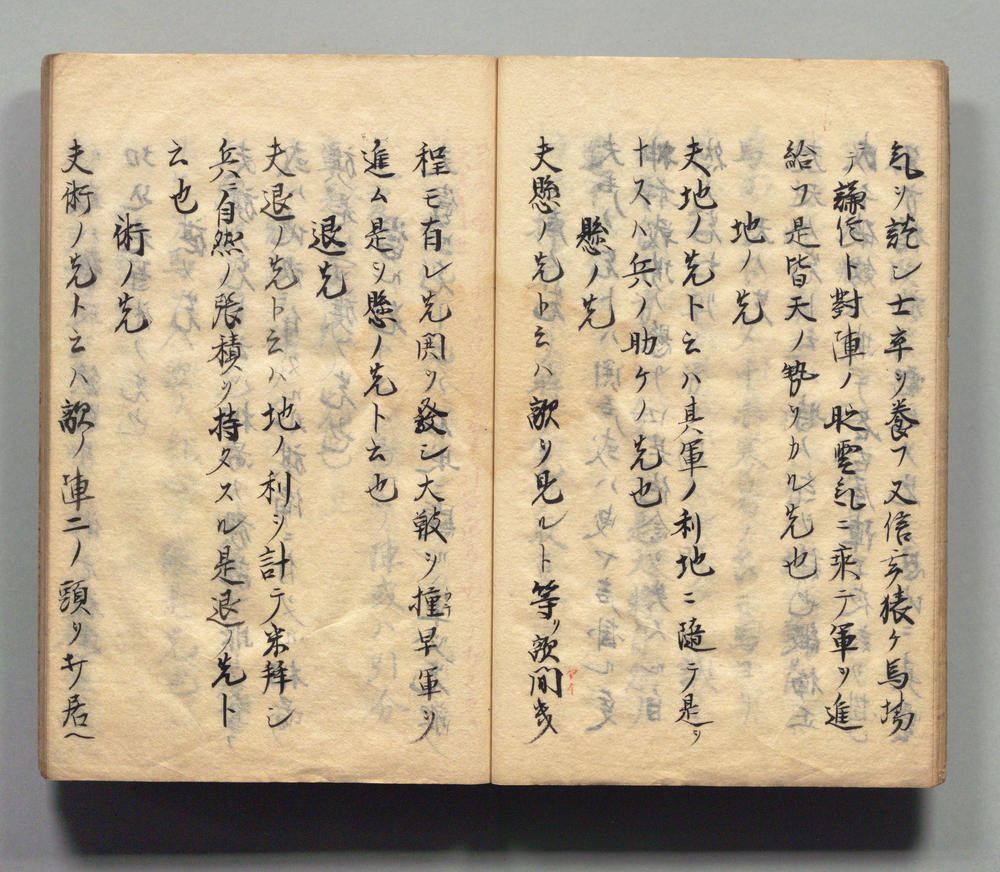 気ヲ詫シ士卒ヲ養フ又信玄猿ケ馬場
テ謙信ト對陣ノ時雲気ニ乗テ軍ヲ進
給フ是皆天ノ勢ヲカル先也
地ノ先
夫地ノ先ト云ハ其軍ノ利地ニ隨テ是ヲ
十スハ兵ノ助ケノ先也
懸ノ先
夫懸ノ先ト云ハ敵ヲ見ルト等ク敵間幾
アイ
程モ有レ先鬨ヲ發シ大鼓ヲ撞早軍ヲ
進ム是ヲ懸ノ先ト云也
退先
夫退ノ先ト云ハ地ノ利ヲ計テ
兵ニ自然ノ張積ヲ持タスル是退ノ先ト
云也
術ノ先
夫術ノ先ト云ハ敵ノ陣ニノ頭ヲサ居ヘ